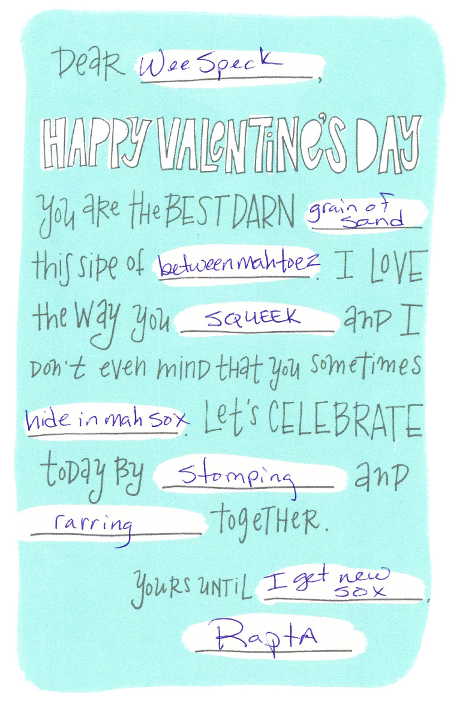 Dear Wee Speck,
HAPPY VALENTINE'S DAY
You are the BEST DARN grain of sand
this side of between mah toez. I LOVE
the way you SQUEEK and I
Don't even mind that you sometimes
hide in mah sox. Let's CELEBRATE
today by Stomping and
rarring together.
Yours until I get new sox,
RaptA